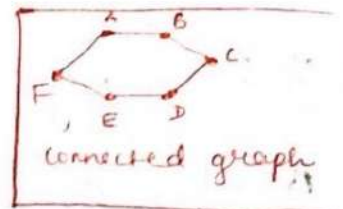 A B
C
F
E D
connected graph